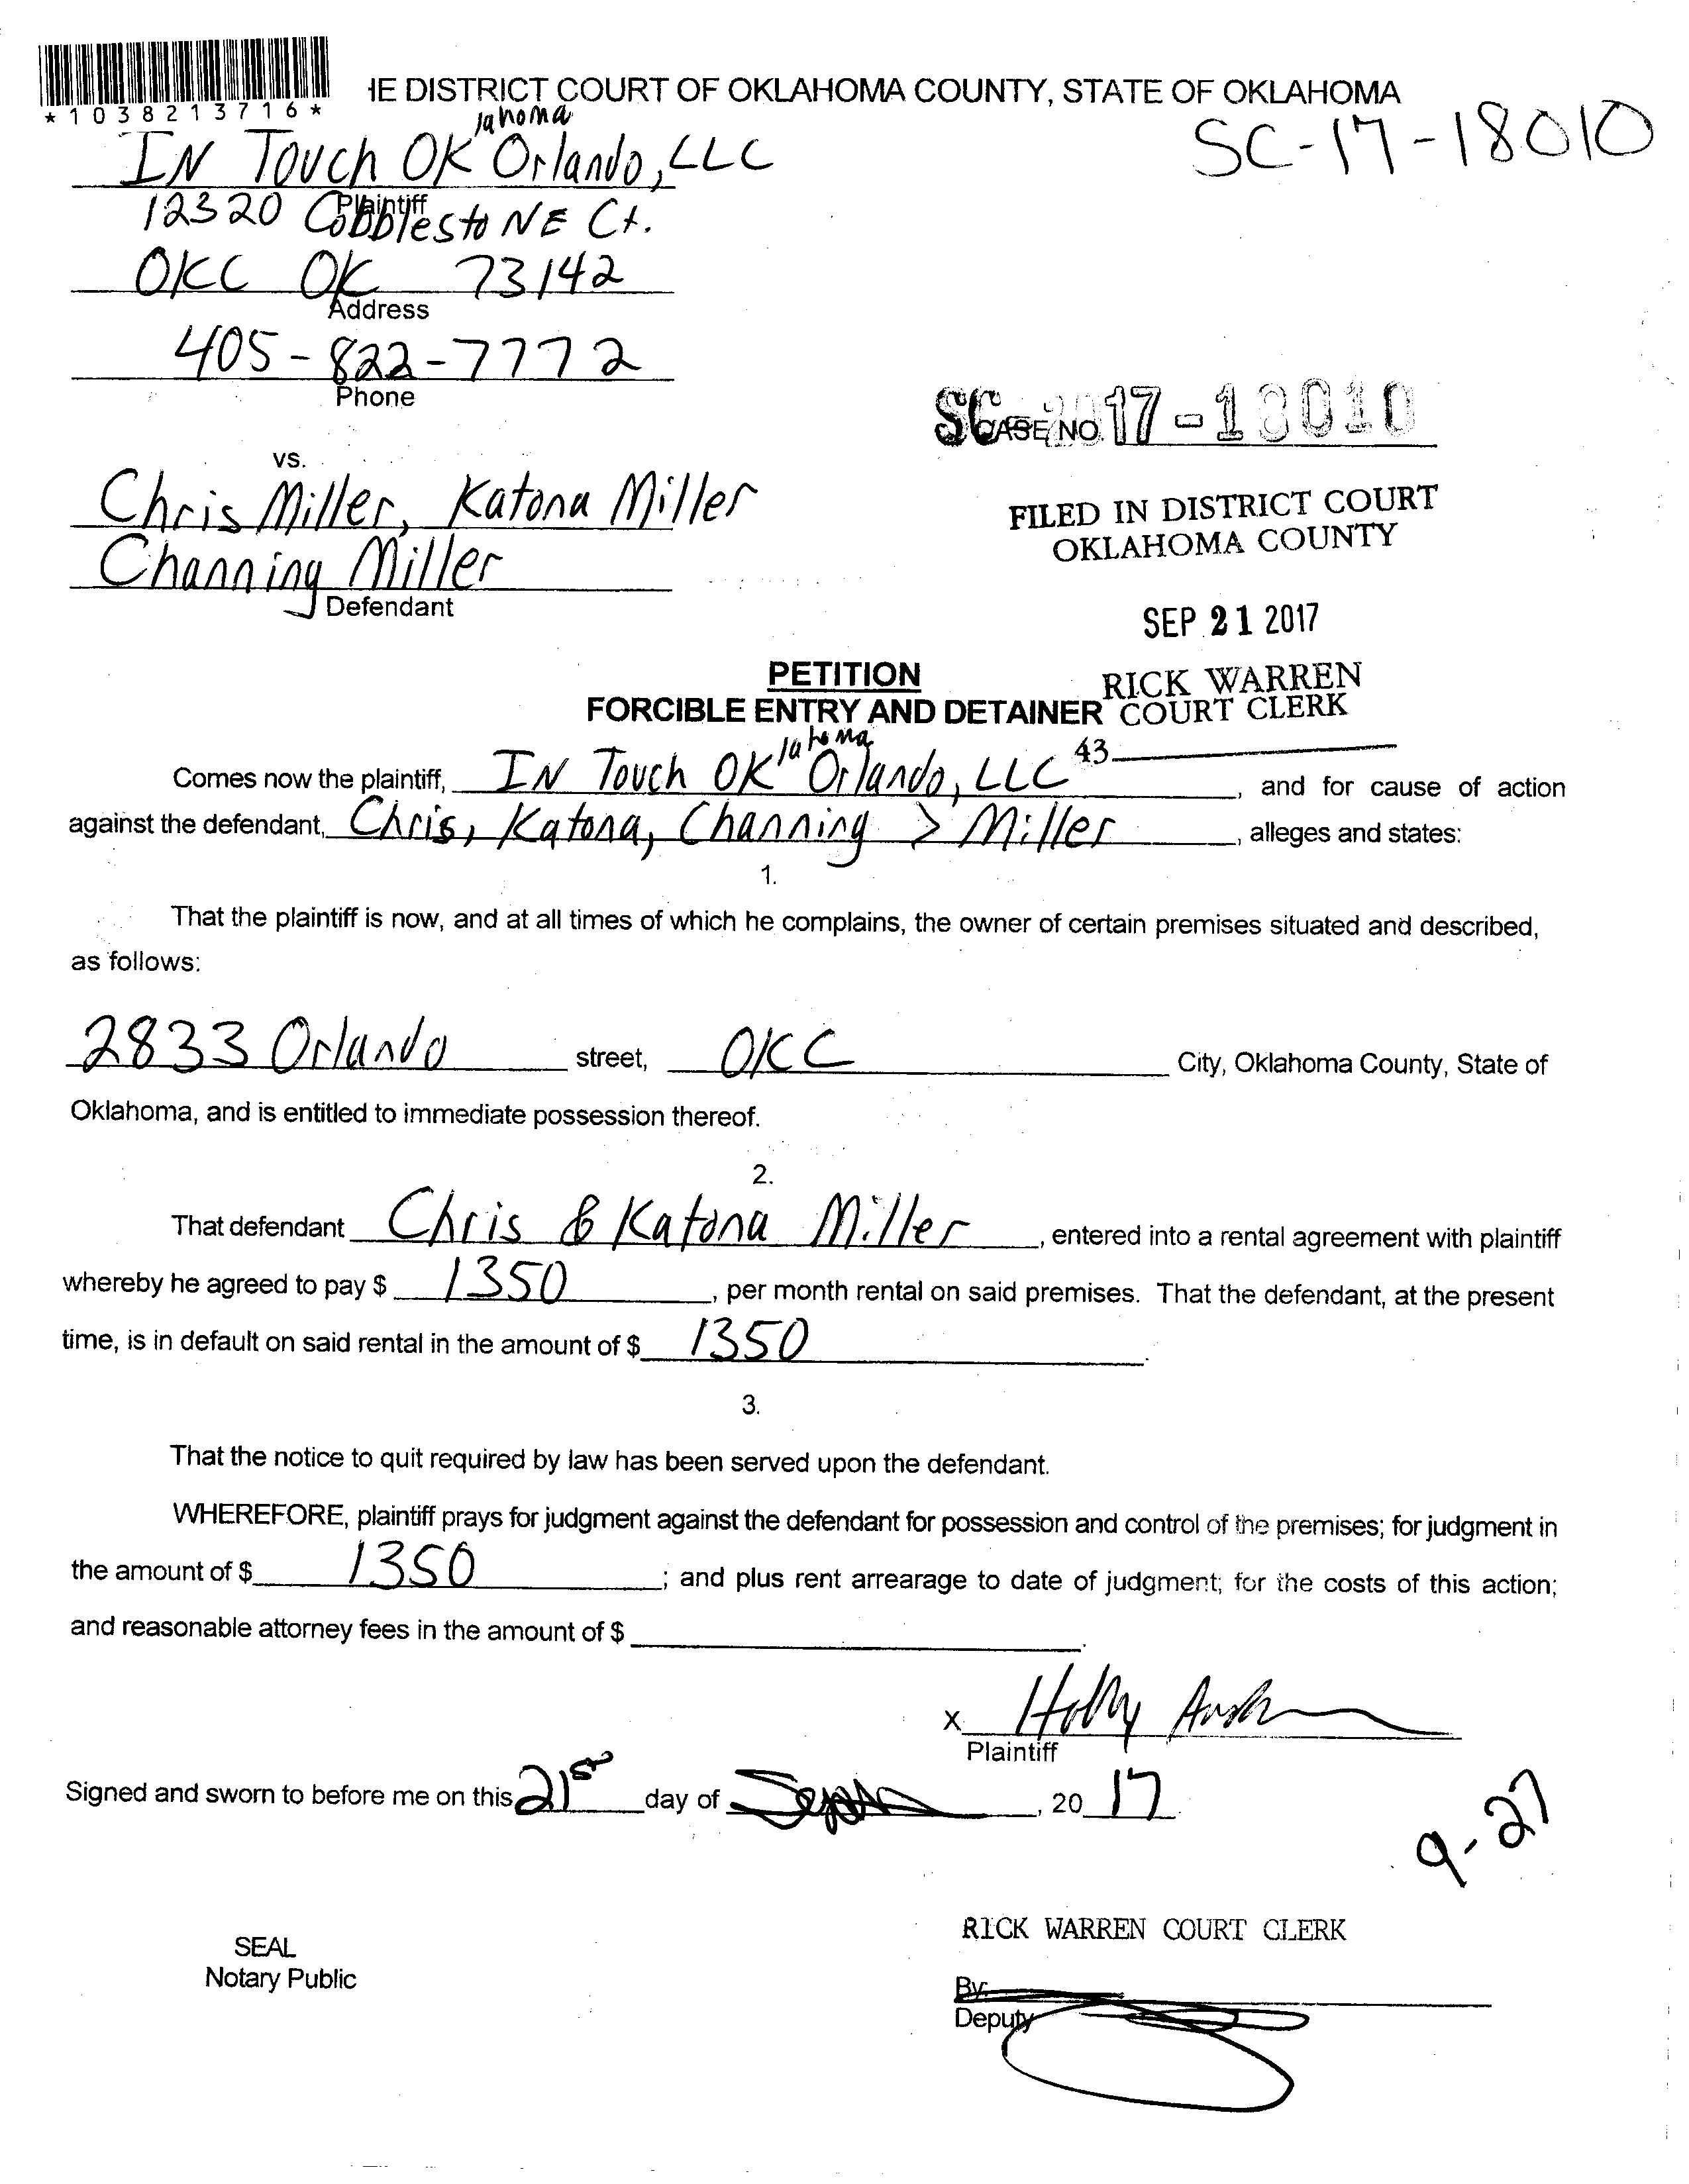 *1038213716*
IE DISTRICT COURT OF OKLAHOMA COUNTY, STATE OF OKLAHOMA
SC-17-18010
IN Touch OKlahoma Orlando, LLC
Plaintiff
12320 CobblestoNE Ct.
OKC OK 73142
Address
405-822-7772
Phone
SC-2017-18010
CASE NO.
vs.
Chris Miller, Katona Miller
Channing Miller
Defendant
FILED IN DISTRICT COURT
OKLAHOMA COUNTY
SEP 21 2017
RICK WARREN
COURT CLERK
43
PETITION
FORCIBLE ENTRY AND DETAINER
Comes now the plaintiff, IN Touch OKlahoma Orlando, LLC, and for cause of action
against the defendant, Chris, Katona, Channing > Miller, alleges and states:
1.
That the plaintiff is now, and at all times of which he complains, the owner of certain premises situated and described,
as follows:
2833 Orlando street, OKC City, Oklahoma County, State of
Oklahoma, and is entitled to immediate possession thereof.
2.
That defendant Chris & Katona Miller, entered into a rental agreement with plaintiff
whereby he agreed to pay $ 1350, per month rental on said premises. That the defendant, at the present
time, is in default on said rental in the amount of $ 1350.
3.
That the notice to quit required by law has been served upon the defendant.
WHEREFORE, plaintiff prays for judgment against the defendant for possession and control of the premises; for judgment in
the amount of $ 1350; and plus rent arrearage to date of judgment; for the costs of this action;
and reasonable attorney fees in the amount of $ .
x Holly
Plaintiff
Signed and sworn to before me on this 21st day of , 2017
9-27
RICK WARREN COURT CLERK
SEAL
Notary Public
By:
Deputy